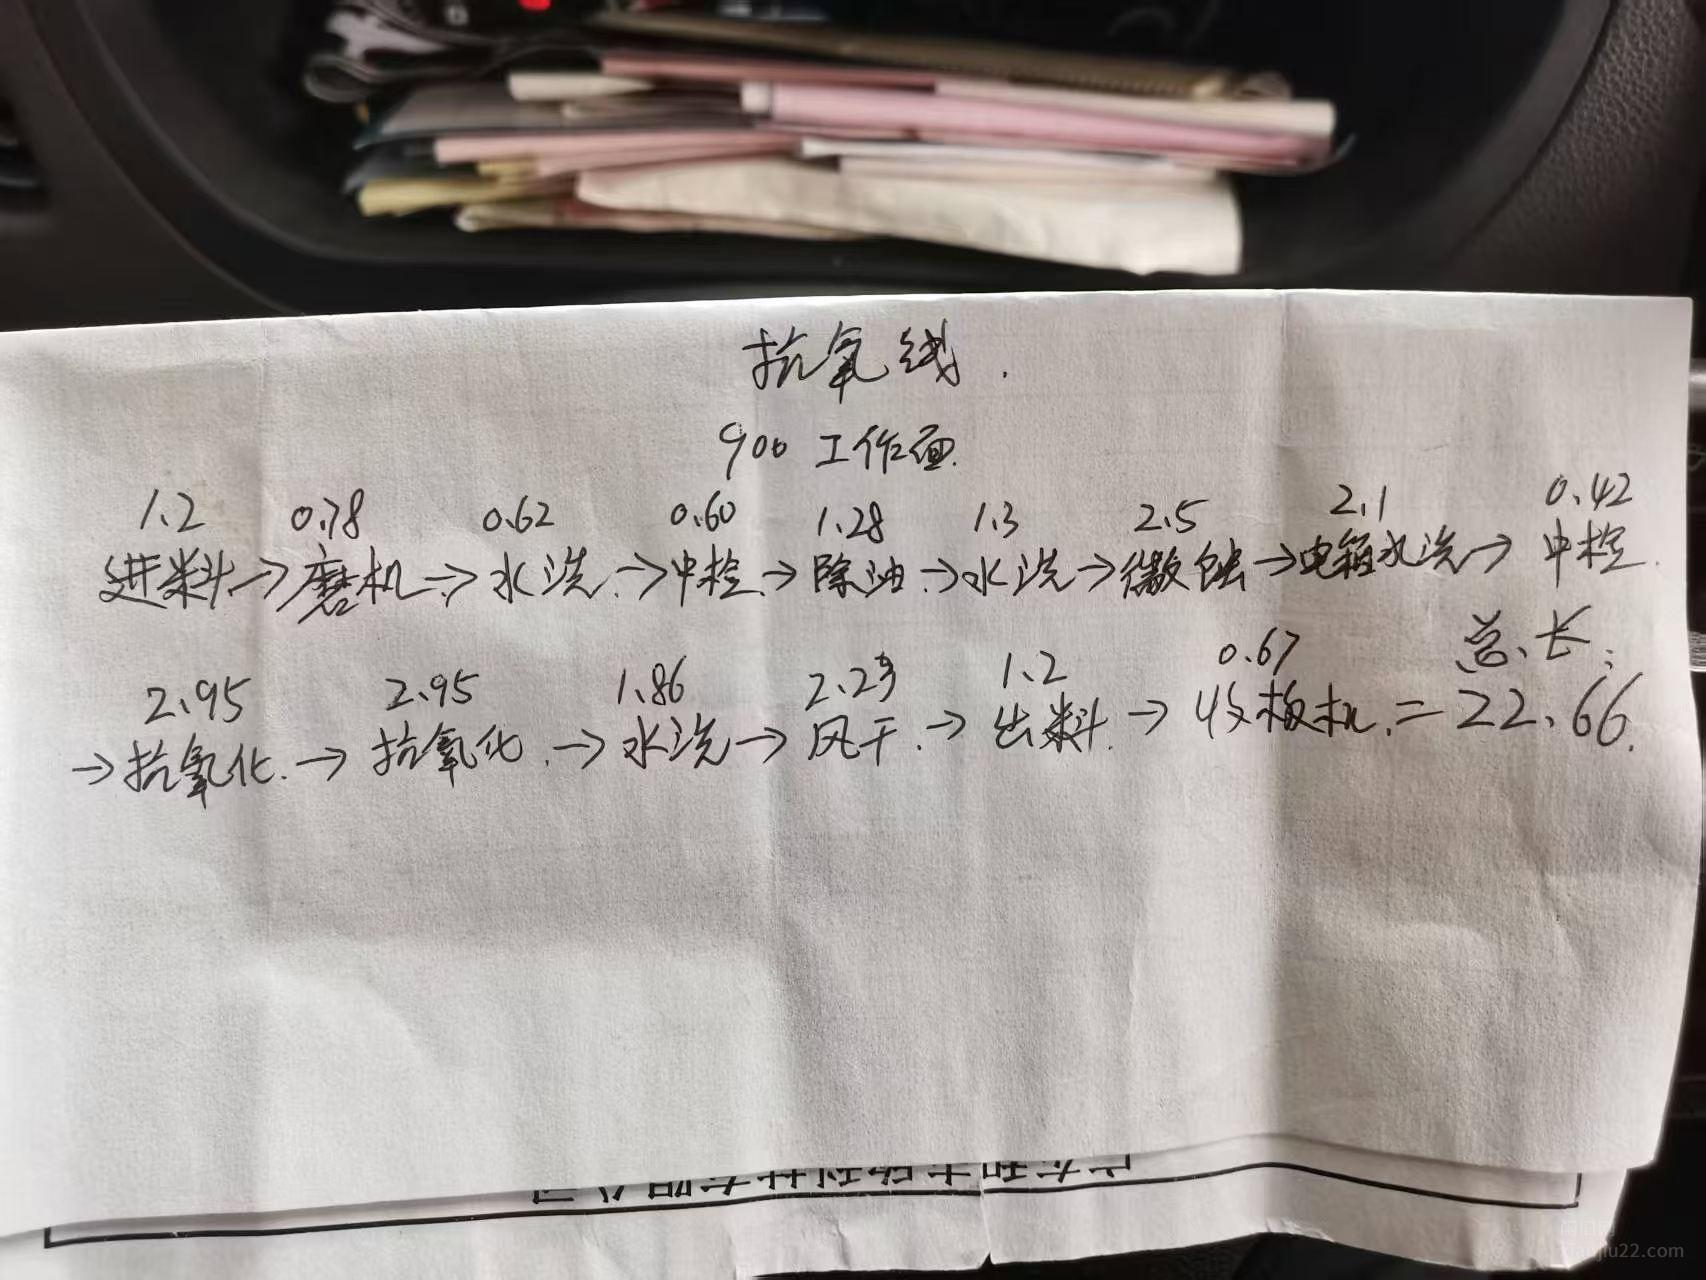 抗氧线.
900 工作面.
1.2 0.78 0.62 0.60 1.28 1.3 2.5 2.1 0.42
进料→磨机→水洗.→中检.→除油.→水洗→微蚀→电箱水洗→中检.
总长:
2.95 2.95 1.86 2.23 1.2 0.67
→抗氧化.→抗氧化.→水洗→风干.→出料.→收板机.=22.66.
jiu22.com